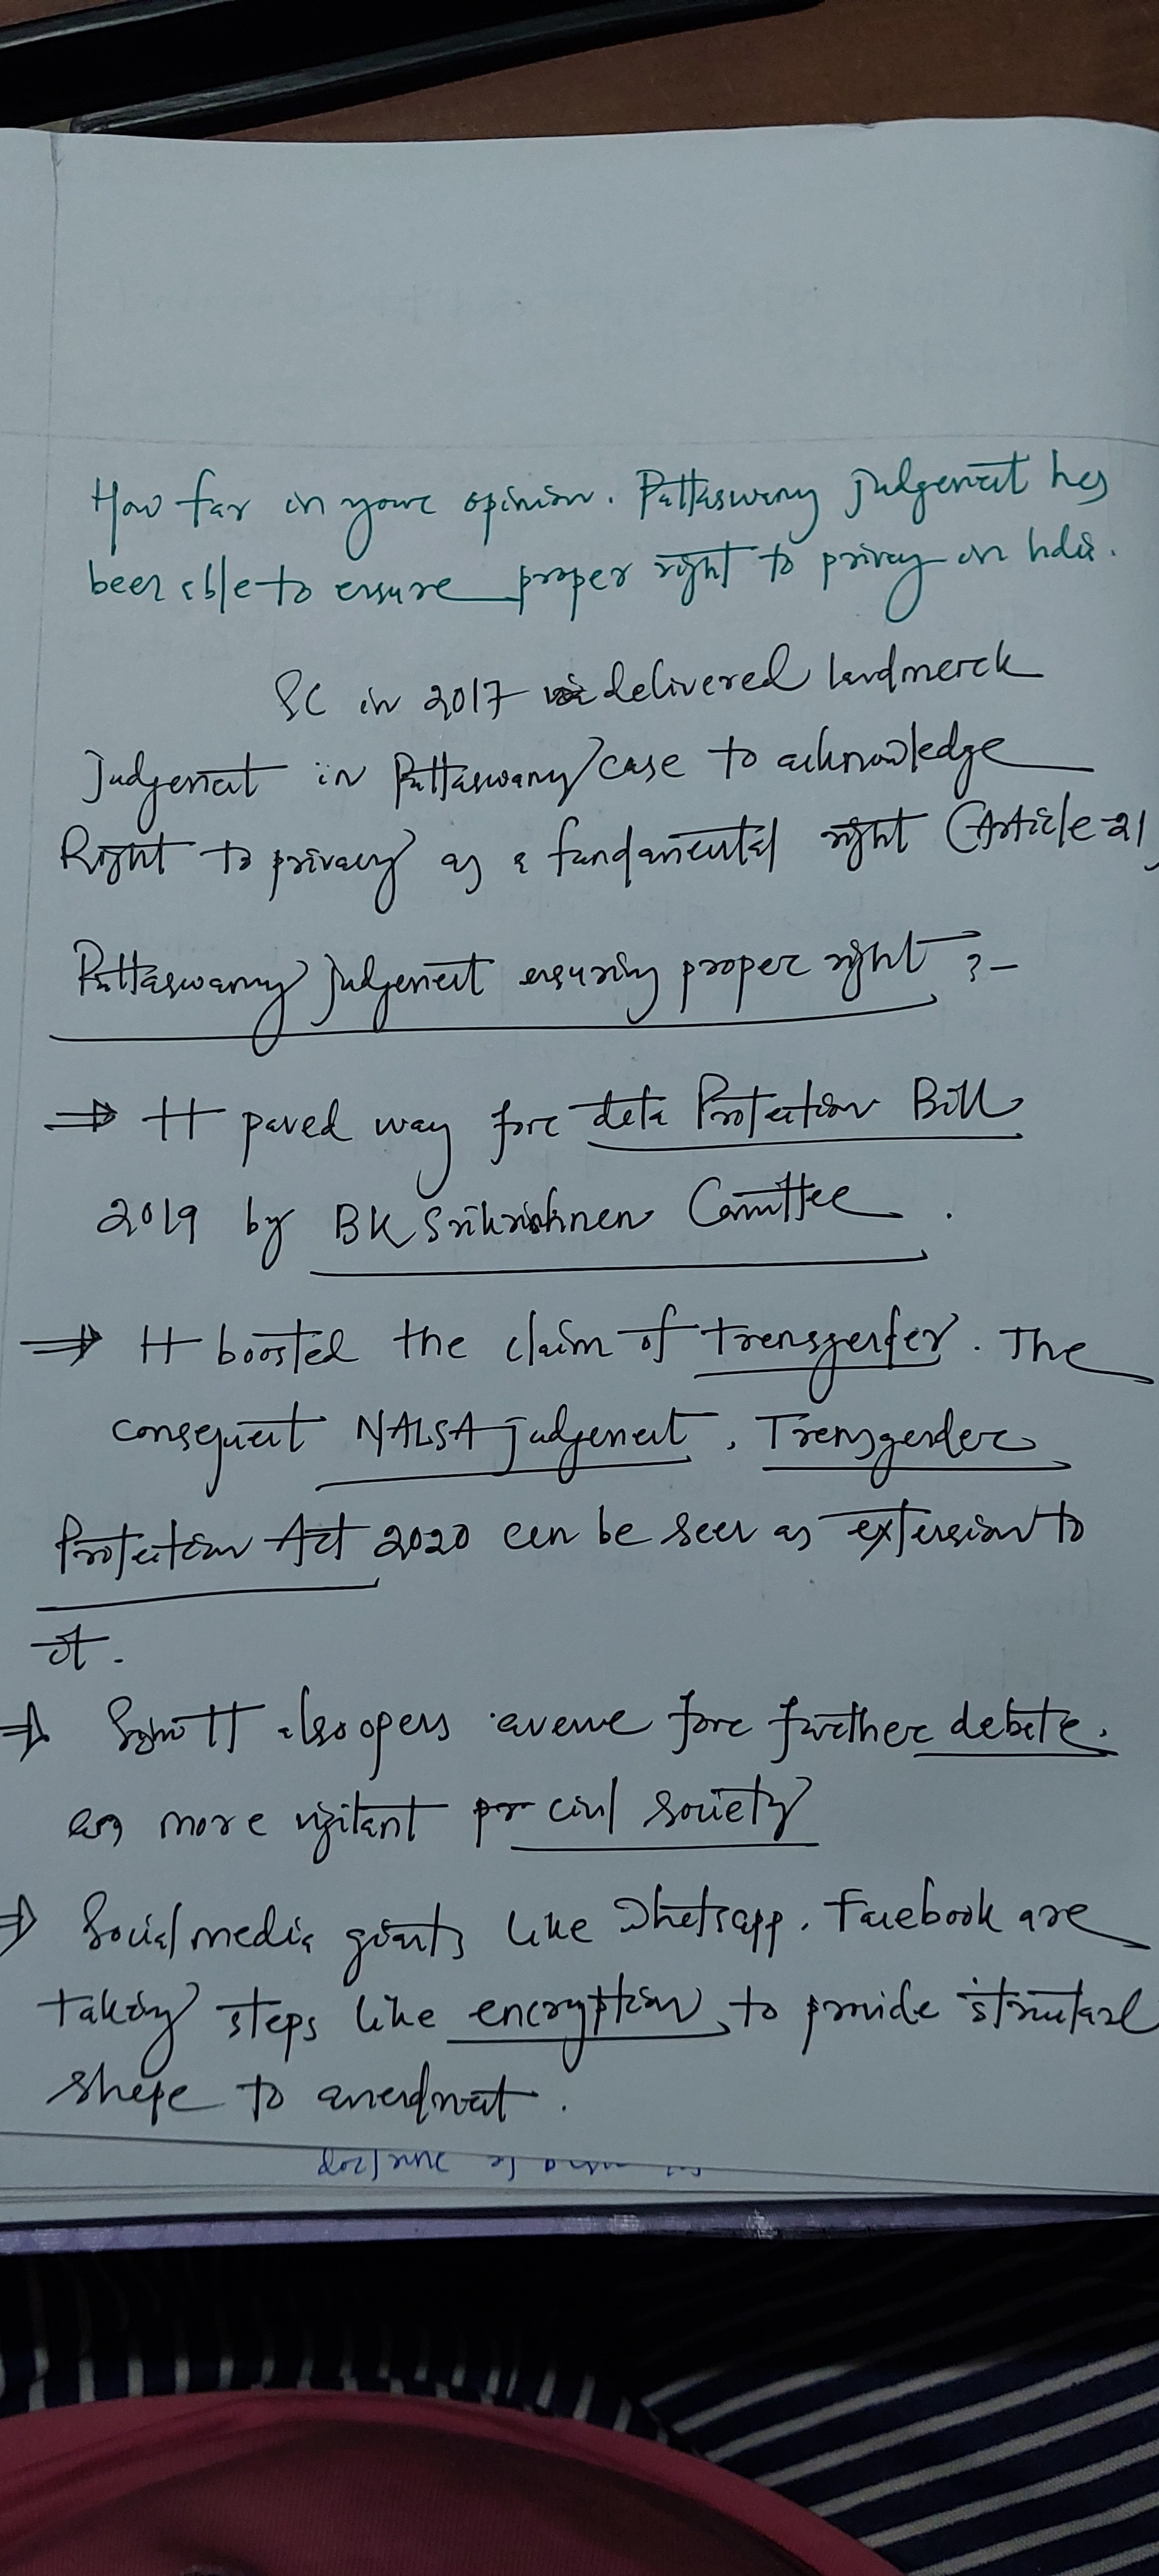 How far in your opinion. Puttaswamy judgement has
been able to ensure proper right to privacy in India.
SC in 2017 delivered landmark
judgement in Puttaswamy case to acknowledge
Right to privacy as a fundamental right (Article 21
Puttaswamy judgement ensuring proper right ?-
⇒ It paved way for data Protection Bill
2019 by BK Srikrishnan Comittee .
⇒ It boosted the claim of transgender. The
consequent NALSA judgement, Transgender
Protection Act 2020 can be seen as extension to
it.
⇒ It also opens avenue for further debate.
more vigilant civil society
⇒ Social media giants like Whatsapp, Facebook are
taking steps like encryption, to provide structural
shape to amendment.